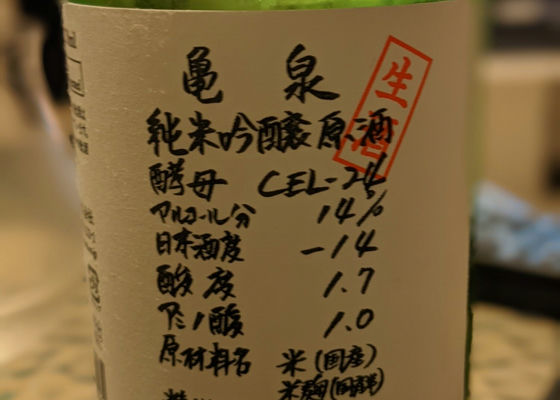 亀泉
生酒
純米吟醸原酒
酵母 CEL-24
アルコール分 14%
日本酒度 -14
酸度 1.7
アミノ酸 1.0
原材料名 米(国産)
米麹(国産)